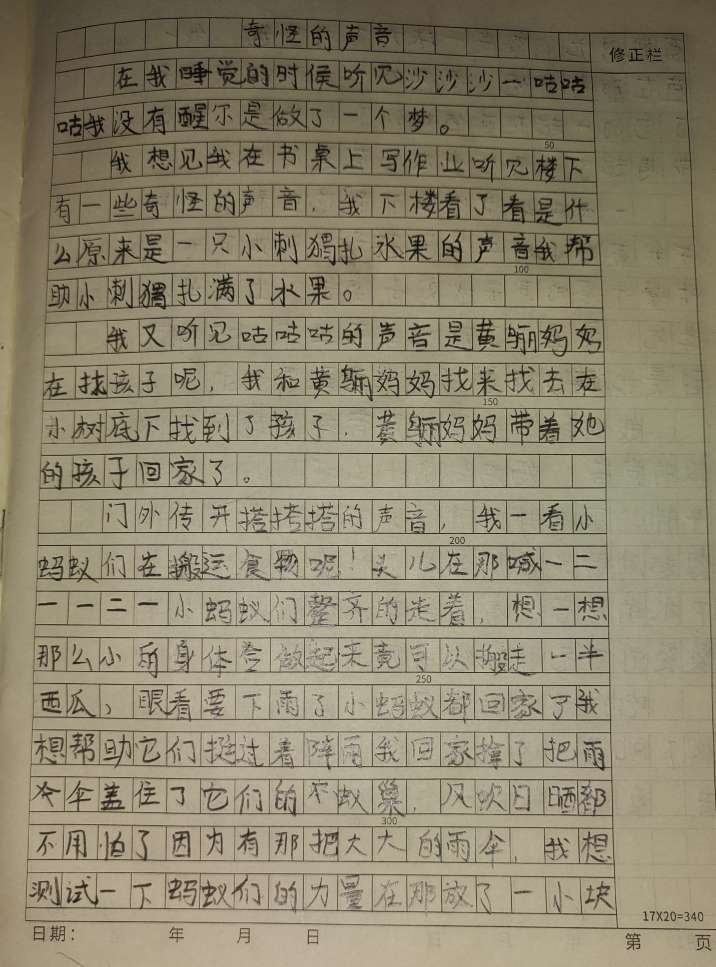 奇怪的声音
修正栏
在我睡觉的时侯听见沙沙沙一咕咕
咕我没有醒尔是做了一个梦。
50
我想见我在书桌上写作业听见楼下
有一些奇怪的声音，我下楼看了看是什
么原来是一只小刺猬扎水果的声音我帮
100
助小刺猬扎满了水果。
我又听见咕咕咕的声音是黄骊妈妈
在找孩子呢，我和黄骊妈妈找来找去在
150
小树底下找到了孩子，黄骊妈妈带着她
的孩子回家了。
门外传开搭搭搭的声音，我一看小
200
蚂蚁们在搬运食物呢！头儿在那喊一二
一一二一小蚂蚁们整齐的走着，想一想
那么小的身体合做起来竟可以搬走一半
250
西瓜，眼看要下雨了小蚂蚁都回家了我
想帮助它们挺过着阵雨我回家拿了把雨
伞盖住了它们的蚁巢，风吹日晒都
300
不用怕了因为有那把大大的雨伞，我想
测试一下蚂蚁们的力量在那放了一小块
17X20=340
日期： 年 月 日 第 页